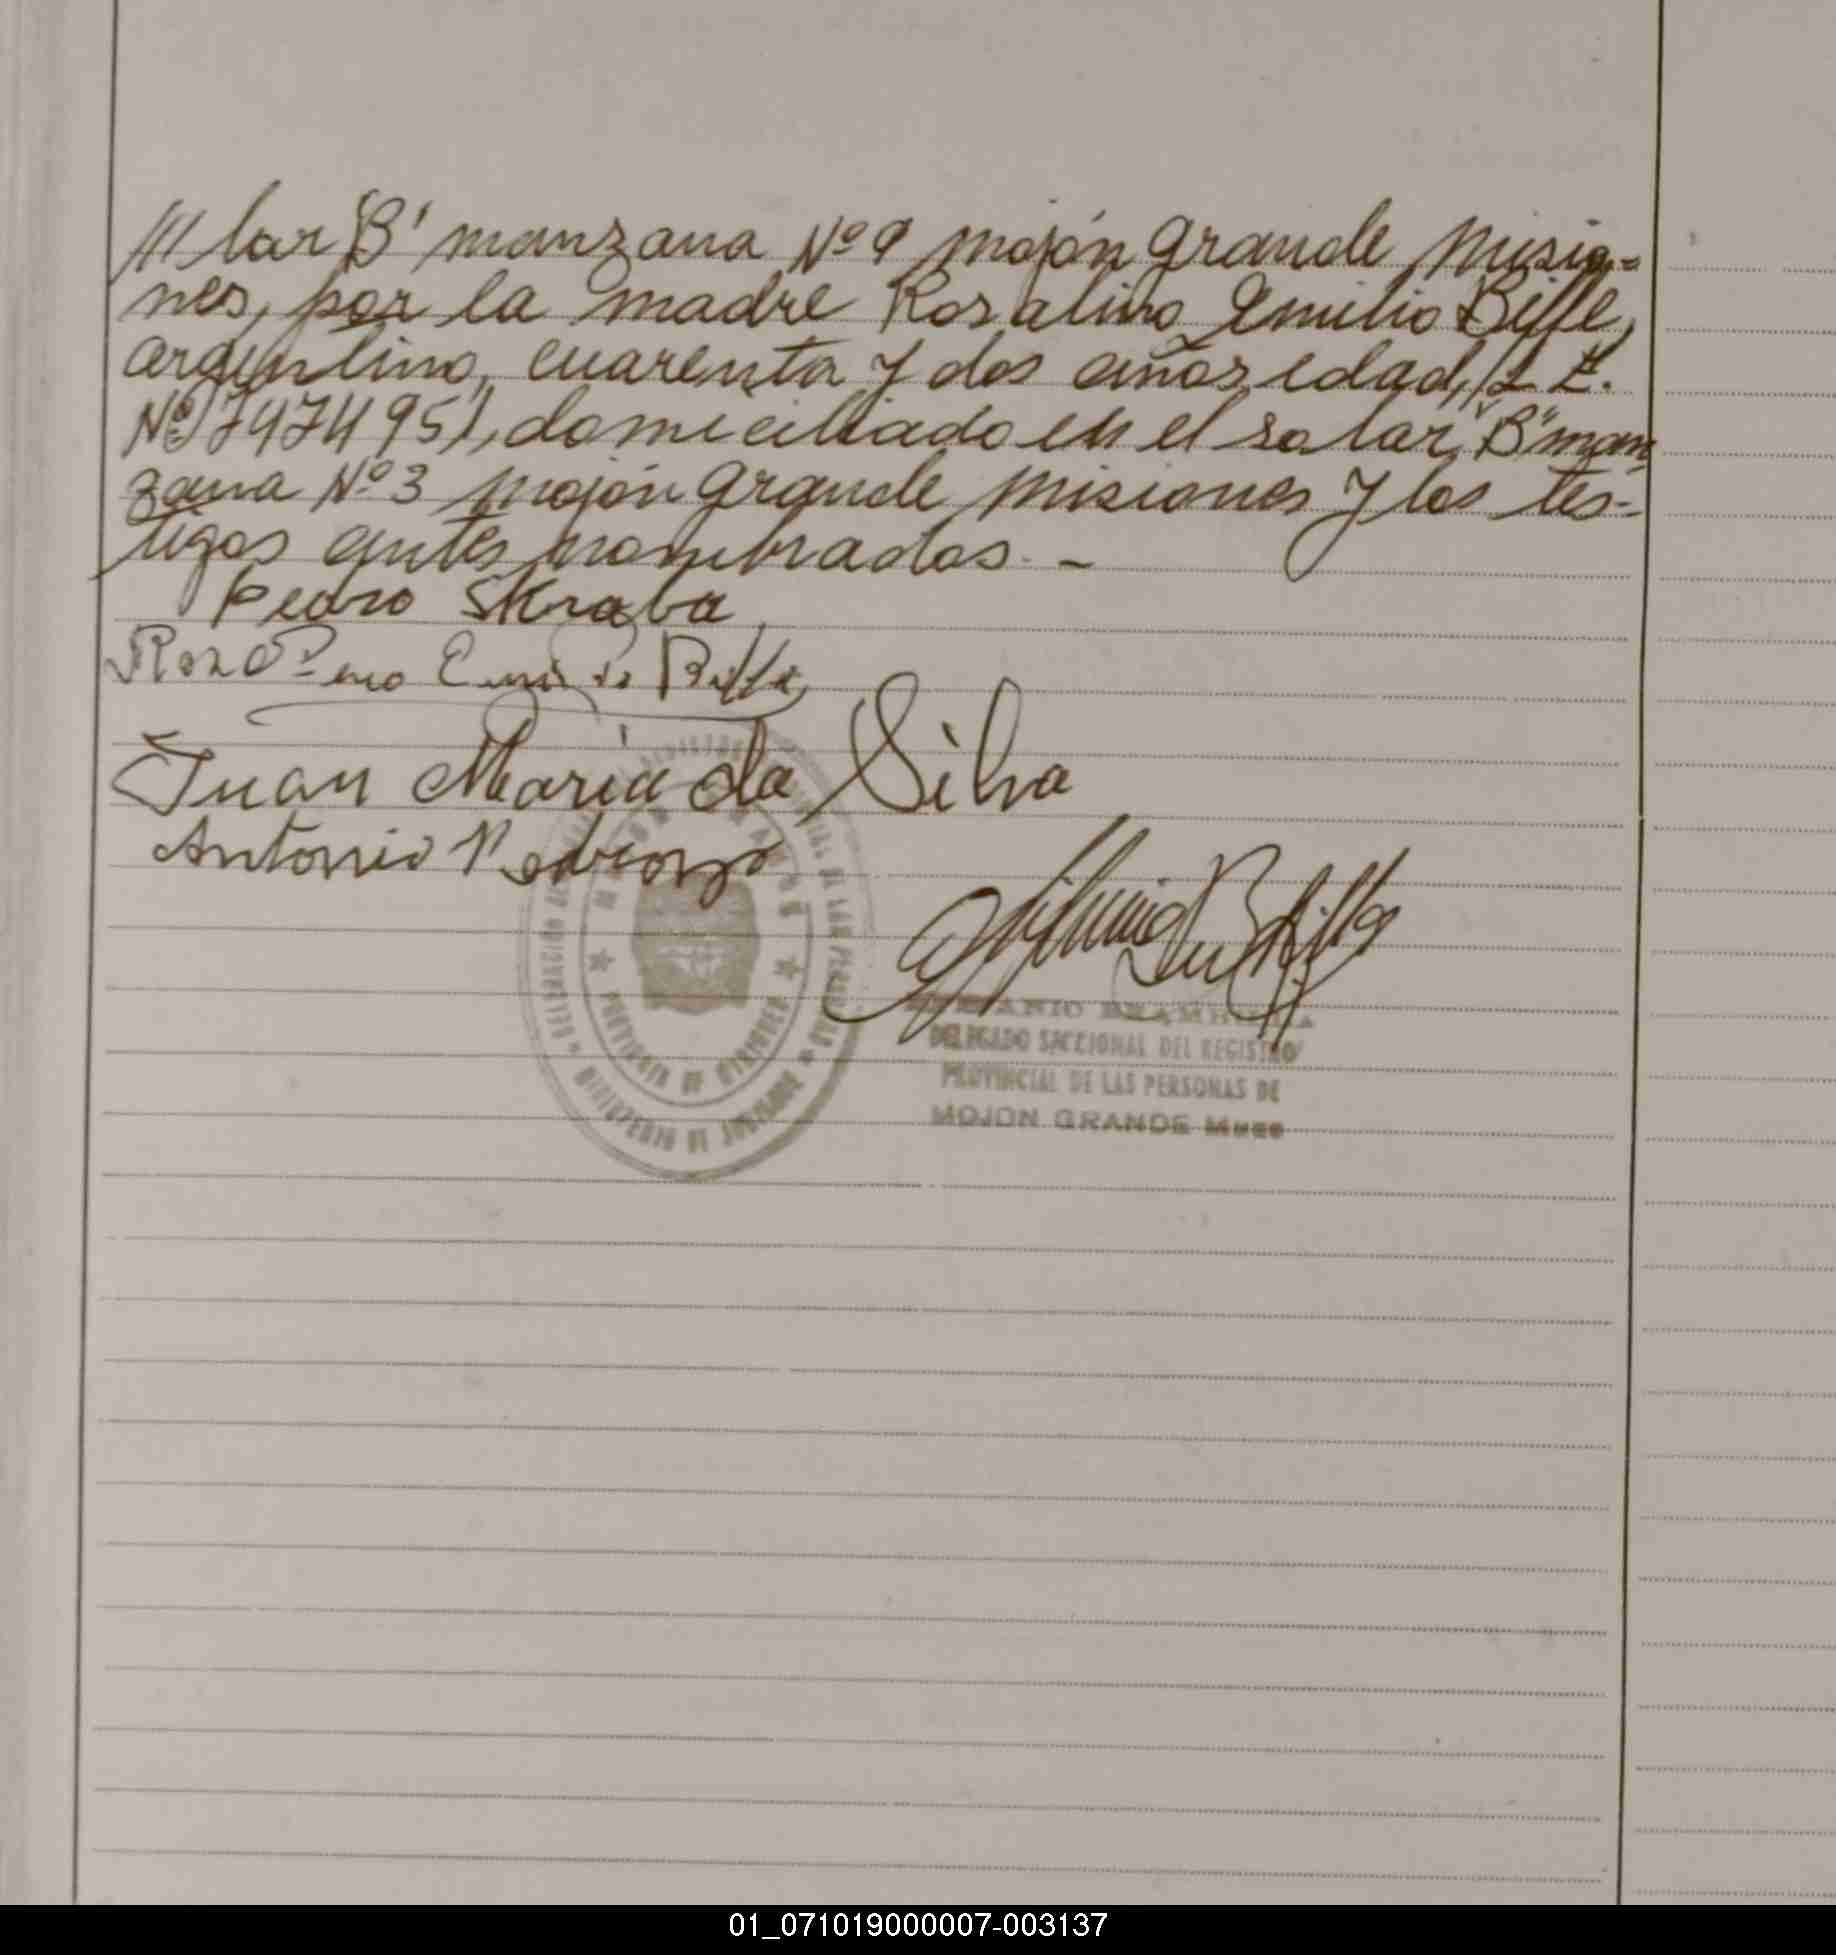 /// lar "B" manzana Nº 9 Mojón Grande Misio=
nes, por la madre Rosalino Emilio Biffe,
argentino, cuarenta y dos años edad, (L E.
Nº 7474951), domiciliado en el solar "B" man
zana Nº 3 Mojón Grande Misiones y los tes-
tigos antes nombrados. -
Pedro Skraba
Emilio
Juan Maria da Silva
Antonio
DELEGADO SECCIONAL DEL REGISTRO
PROVINCIAL DE LAS PERSONAS DE
MOJON GRANDE Mnes
PROVINCIA DE MISIONES
01_071019000007-003137